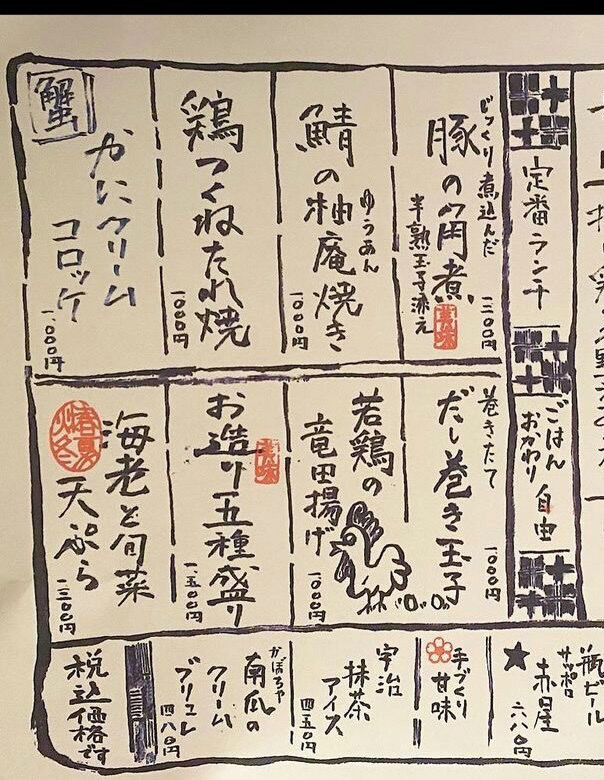 定番ランチ
ごはん
おかわり
自由
じっくり煮込んだ
豚の角煮
半熟玉子添え
一二〇〇円
鯖の柚庵焼き
ゆうあん
一〇〇〇円
鶏つくねたれ焼
一〇〇〇円
蟹
かにクリーム
コロッケ
一、〇〇〇円
巻きたて
だし巻き玉子
一〇〇〇円
若鶏の
竜田揚げ
一、〇〇〇円
お造り五種盛り
一、五〇〇円
海老と旬菜
天ぷら
一三〇〇円
瓶ビール
サッポロ
赤星
六八〇円
手づくり
甘味
宇治
抹茶
アイス
四五〇円
かぼちゃ
南瓜の
クリーム
ブリュレ
四八〇円
税込価格です